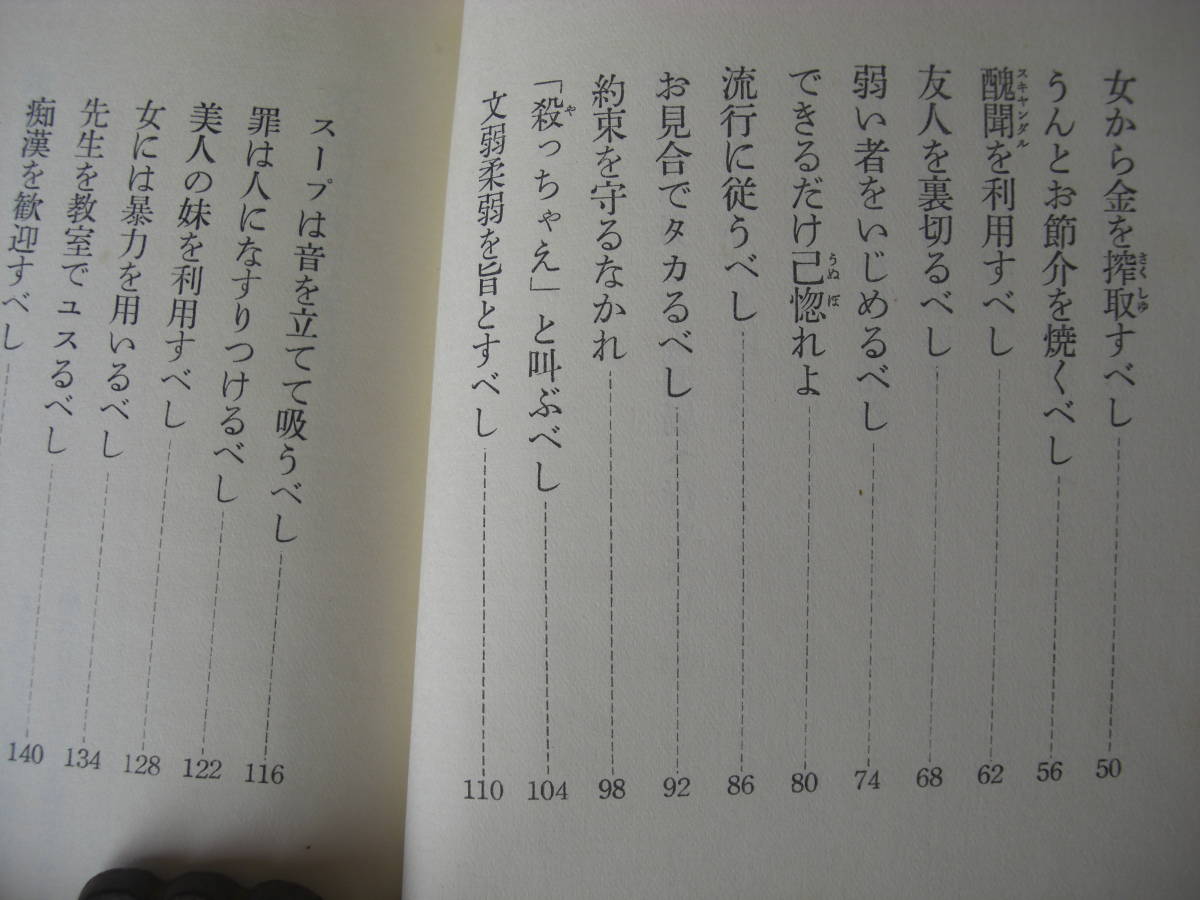 女から金を搾取すべし 50
うんとお節介を焼くべし 56
醜聞を利用すべし 62
友人を裏切るべし 68
弱い者をいじめるべし 74
できるだけ己惚れよ 80
流行に従うべし 86
お見合でタカるべし 92
約束を守るなかれ 98
「殺っちゃえ」と叫ぶべし 104
文弱柔弱を旨とすべし 110
スープは音を立てて吸うべし 116
罪は人になすりつけるべし 122
美人の妹を利用すべし 128
女には暴力を用いるべし 134
先生を教室でユスるべし 140
痴漢を歓迎すべし
さくしゅ
スキャンダル
うぬぼ
や